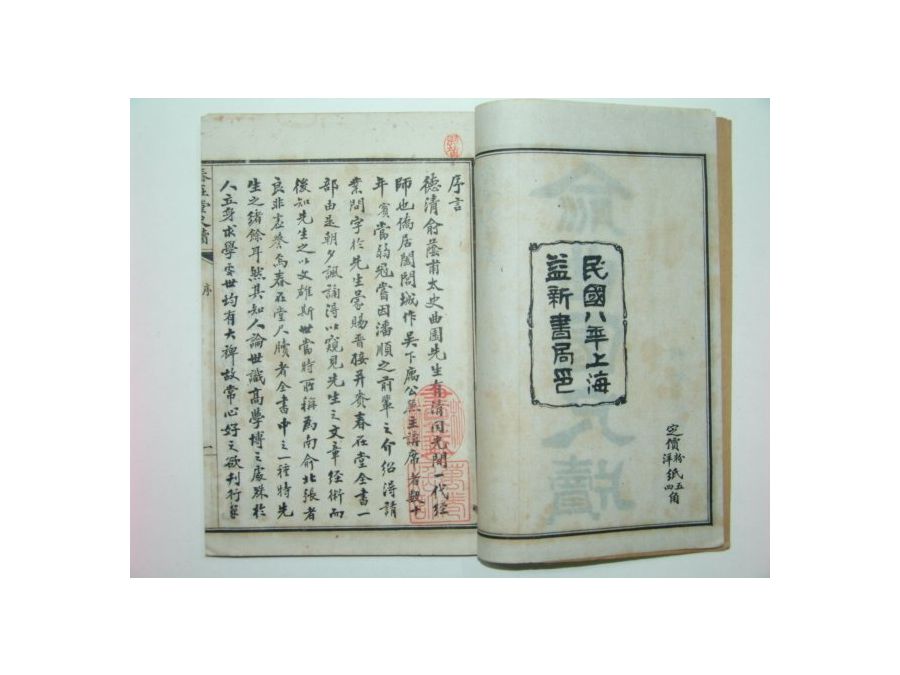 民國八年上海
益新書局印
定價
粉紙五角
洋紙四角
序言
德清俞蔭甫太史曲園先生有清同光間一代經
師也僑居闔閭城作吳下寓公兼主講席者數十
年賓當弱冠嘗因潘順之前輩之介紹得請
業問字於先生蒙賜晉接并賚春在堂全書一
部由是朝夕諷誦得以窺見先生之文章經術而
後知先生之以文雄斯世當時所稱為南俞北張者
良非虛譽焉春在堂尺牘者全書中之一種特先
生之緒餘耳然其知人論世識高學博之處殊於
人立身求學安世均有大裨故常心好之欲刊行單
春在堂尺牘
序
一